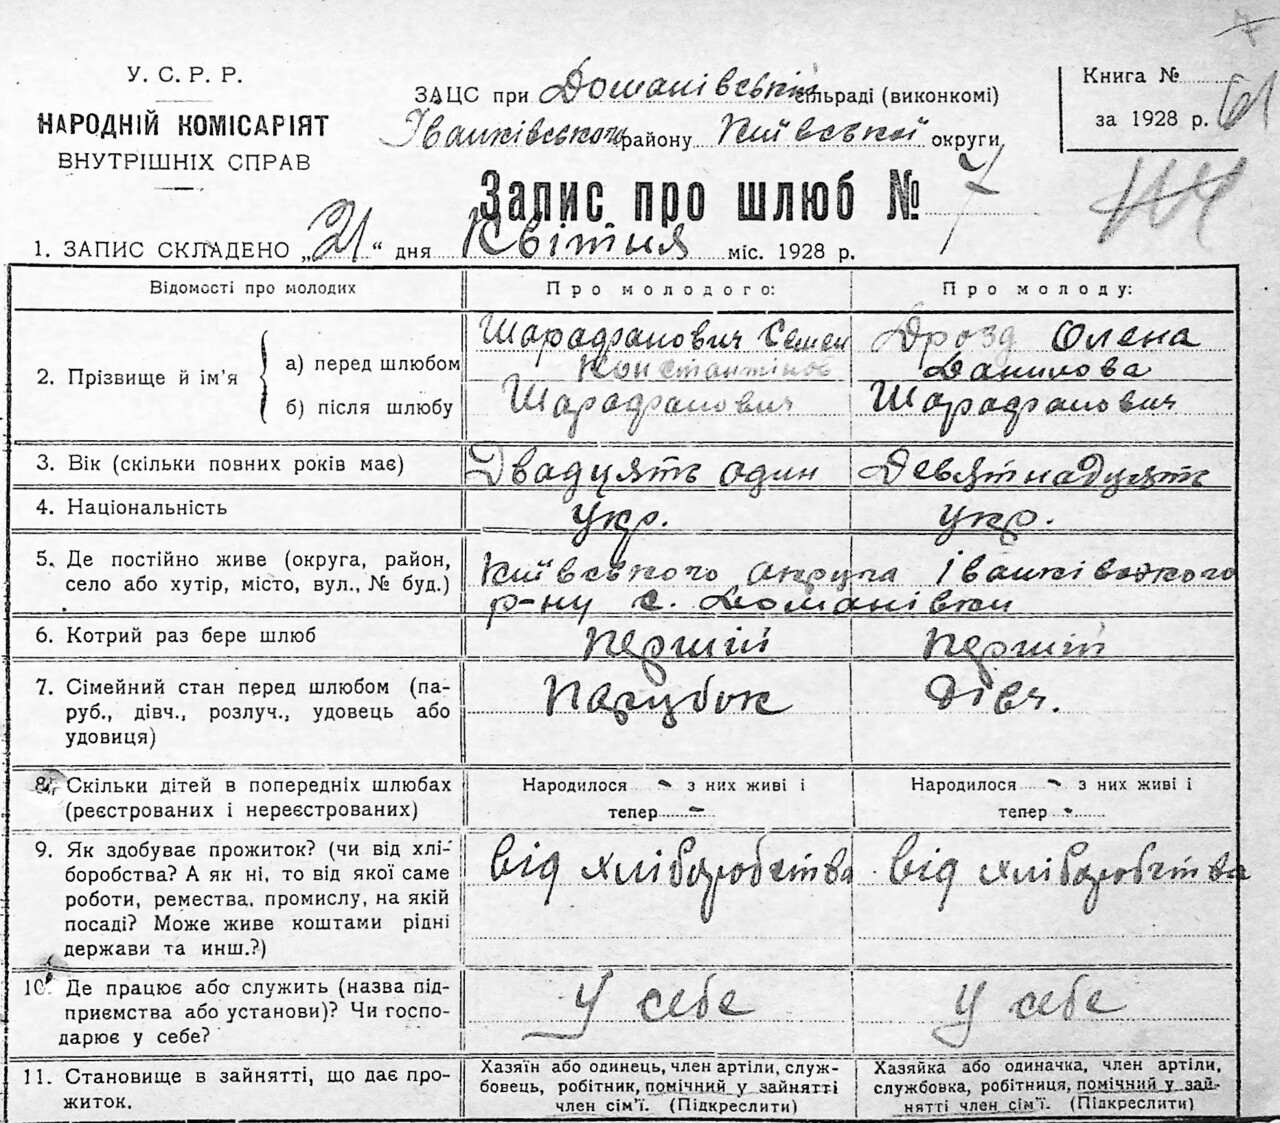 У. С. Р. Р.
НАРОДНІЙ КОМІСАРІЯТ
ВНУТРІШНІХ СПРАВ
ЗАЦС при Доманівській сільраді (виконкомі)
Іванківського району Київської округи
Книга №
за 1928 р.
61
Запис про шлюб № 7
1. ЗАПИС СКЛАДЕНО „21“ дня Квітня міс. 1928 р.
Відомості про молодих
Про молодого:
Про молоду:
2. Прізвище й ім'я
а) перед шлюбом
Шарафанович Семен
Константінов
Дрозд Олена
Данилова
б) після шлюбу
Шарафанович
Шарафанович
3. Вік (скільки повних років має)
Двадцять один
Девятнадцять
4. Національність
укр.
укр.
5. Де постійно живе (округа, район,
село або хутір, місто, вул., № буд.)
Київського округа Іванківського
р-ну с. Доманівки
6. Котрий раз бере шлюб
перший
перший
7. Сімейний стан перед шлюбом (па-
руб., дівч., розлуч., удовець або
удовиця)
Парубок
дівч.
8. Скільки дітей в попередніх шлюбах
(реєстрованих і нереєстрованих)
Народилося - з них живі і
тепер -
Народилося - з них живі і
тепер -
9. Як здобуває прожиток? (чи від хлі-
боробства? А як ні, то від якої саме
роботи, ремества, промислу, на якій
посаді? Може живе коштами рідні
держави та инш.?)
від хліборобства
від хліборобства
10. Де працює або служить (назва під-
приємства або установи)? Чи госпо-
дарює у себе?
у себе
у себе
11. Становище в зайнятті, що дає про-
житок.
Хазяїн або одинець, член артілі, служ-
бовець, робітник, помічний у зайнятті
член сім'ї. (Підкреслити)
Хазяйка або одиначка, член артіли,
службовка, робітниця, помічний у зай-
нятті член сім'ї. (Підкреслити)